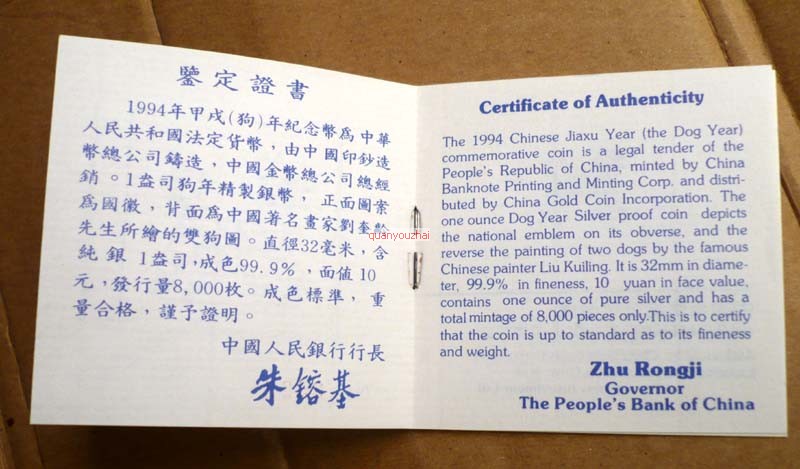 鑒定證書
1994年甲戌(狗)年紀念幣為中華
人民共和國法定貨幣，由中國印鈔造
幣總公司鑄造，中國金幣總公司總經
銷。1盎司狗年精製銀幣，正面圖案
為國徽，背面為中國著名畫家劉奎齡
先生所繪的雙狗圖。直徑32毫米，含
純銀1盎司，成色99.9%，面值10
元，發行量8,000枚。成色標準，重
量合格，謹予證明。
中國人民銀行行長
朱鎔基
quanyouzhai
Certificate of Authenticity
The 1994 Chinese Jiaxu Year (the Dog Year)
commemorative coin is a legal tender of the
People's Republic of China, minted by China
Banknote Printing and Minting Corp. and distri-
buted by China Gold Coin Incorporation. The
one ounce Dog Year Silver proof coin depicts
the national emblem on its obverse, and the
reverse the painting of two dogs by the famous
Chinese painter Liu Kuiling. It is 32mm in diame-
ter, 99.9% in fineness, 10 yuan in face value,
contains one ounce of pure silver and has a
total mintage of 8,000 pieces only.This is to certify
that the coin is up to standard as to its fineness
and weight.
Zhu Rongji
Governor
The People's Bank of China